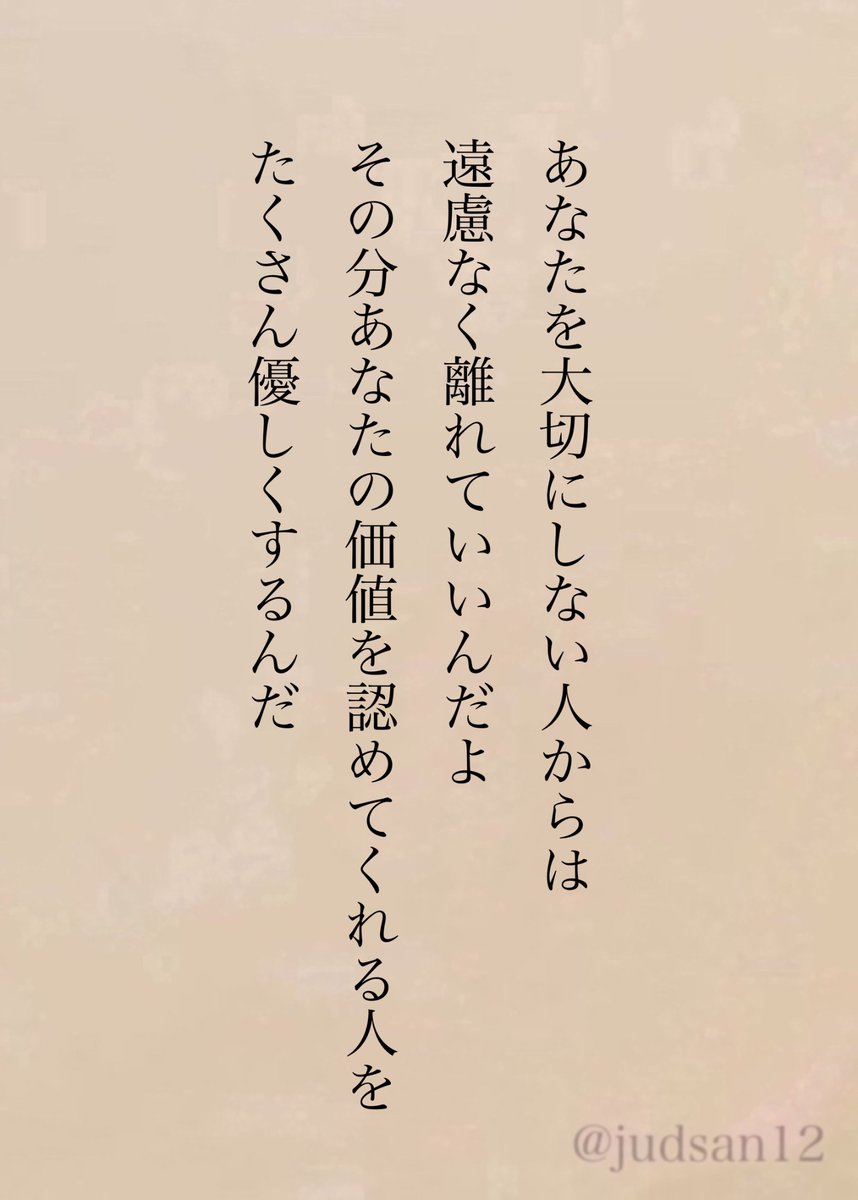 あなたを大切にしない人からは
遠慮なく離れていいんだよ
その分あなたの価値を認めてくれる人を
たくさん優しくするんだ
@judsan12